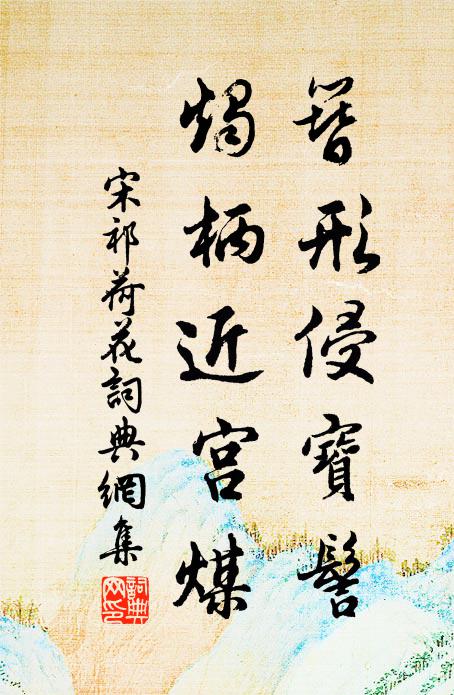 簪形侵寶髻
燭柄近宮煤
宋祁荷花詞典網集
詞典網印